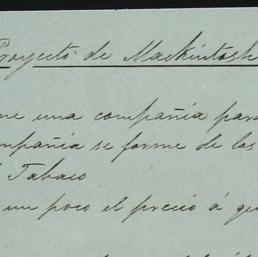 Proyecto de Mackintosh
una compañía para
se forme de las
Tabaco
un poco el precio á